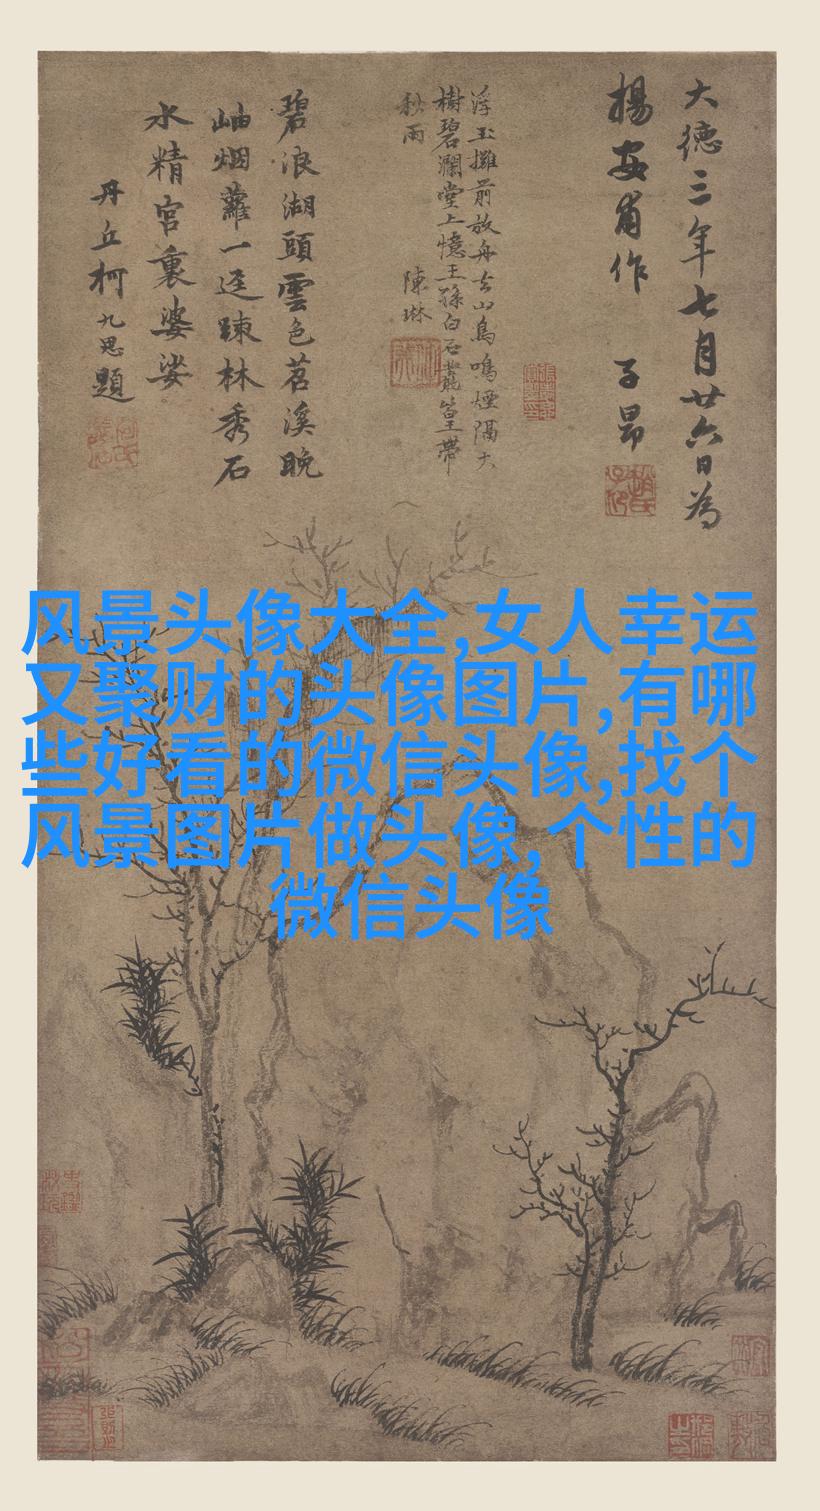 大德三年七月廿六日為
楊安甫作 子昂
浮玉攤前放舟去山鳥鳴煙隔大
樹碧瀾堂上憶王孫白石叢篁帶
秋雨 陳琳
碧浪湖頭雲色苕溪晚
岫烟蘿一逕踈林秀石
水精宮裏婆娑
丹丘柯九思題
风景头像大全,女人幸运
又聚财的头像图片,有哪
些好看的微信头像,找个
风景图片做头像,个性的
微信头像